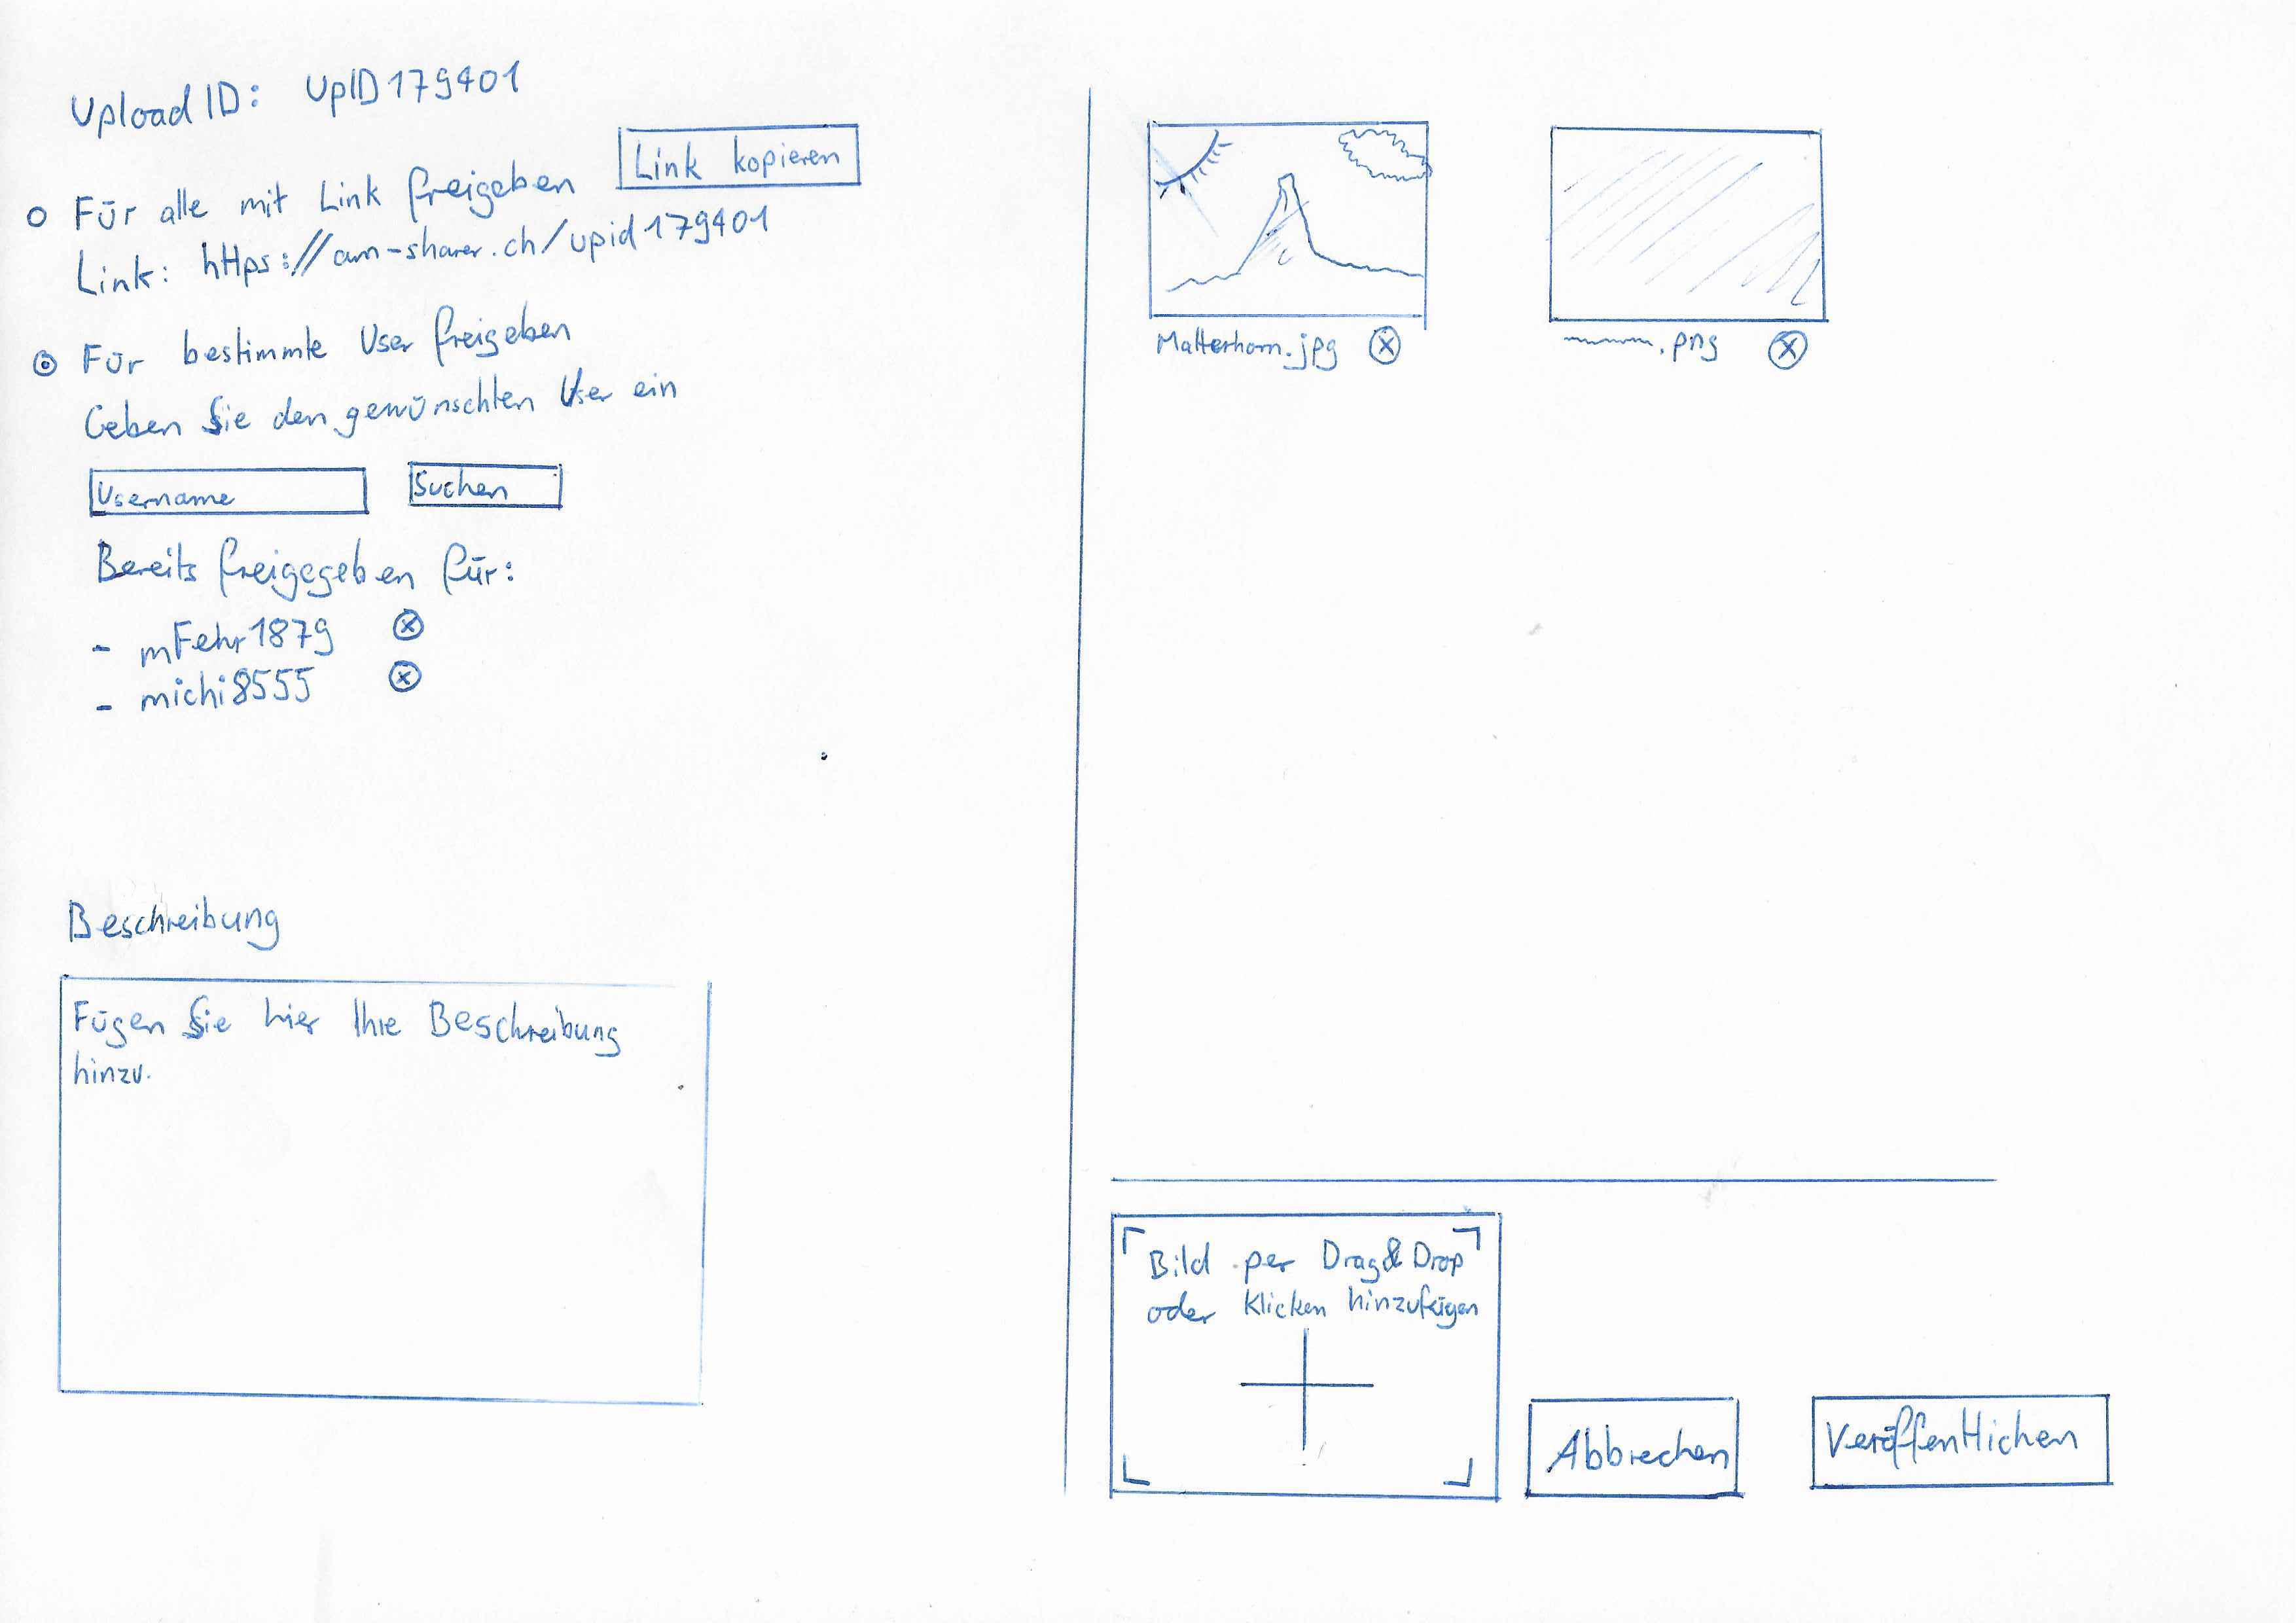 Upload ID: UpID179401
Link kopieren
Für alle mit Link freigeben
Link: https://am-sharer.ch/upid179401
Für bestimmte User freigeben
Geben Sie den gewünschten User ein
Username
Suchen
Bereits freigegeben für:
- mFehr1879
- michi8555
Beschreibung
Fügen Sie hier Ihre Beschreibung
hinzu.
Matterhorn.jpg
.png
Bild per Drag&Drop
oder Klicken hinzufügen
Abbrechen
Veröffentlichen